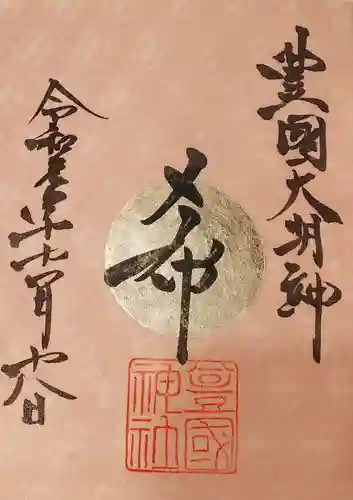 豊國大明神
希
豊國
神社
令和元年十一月十八日